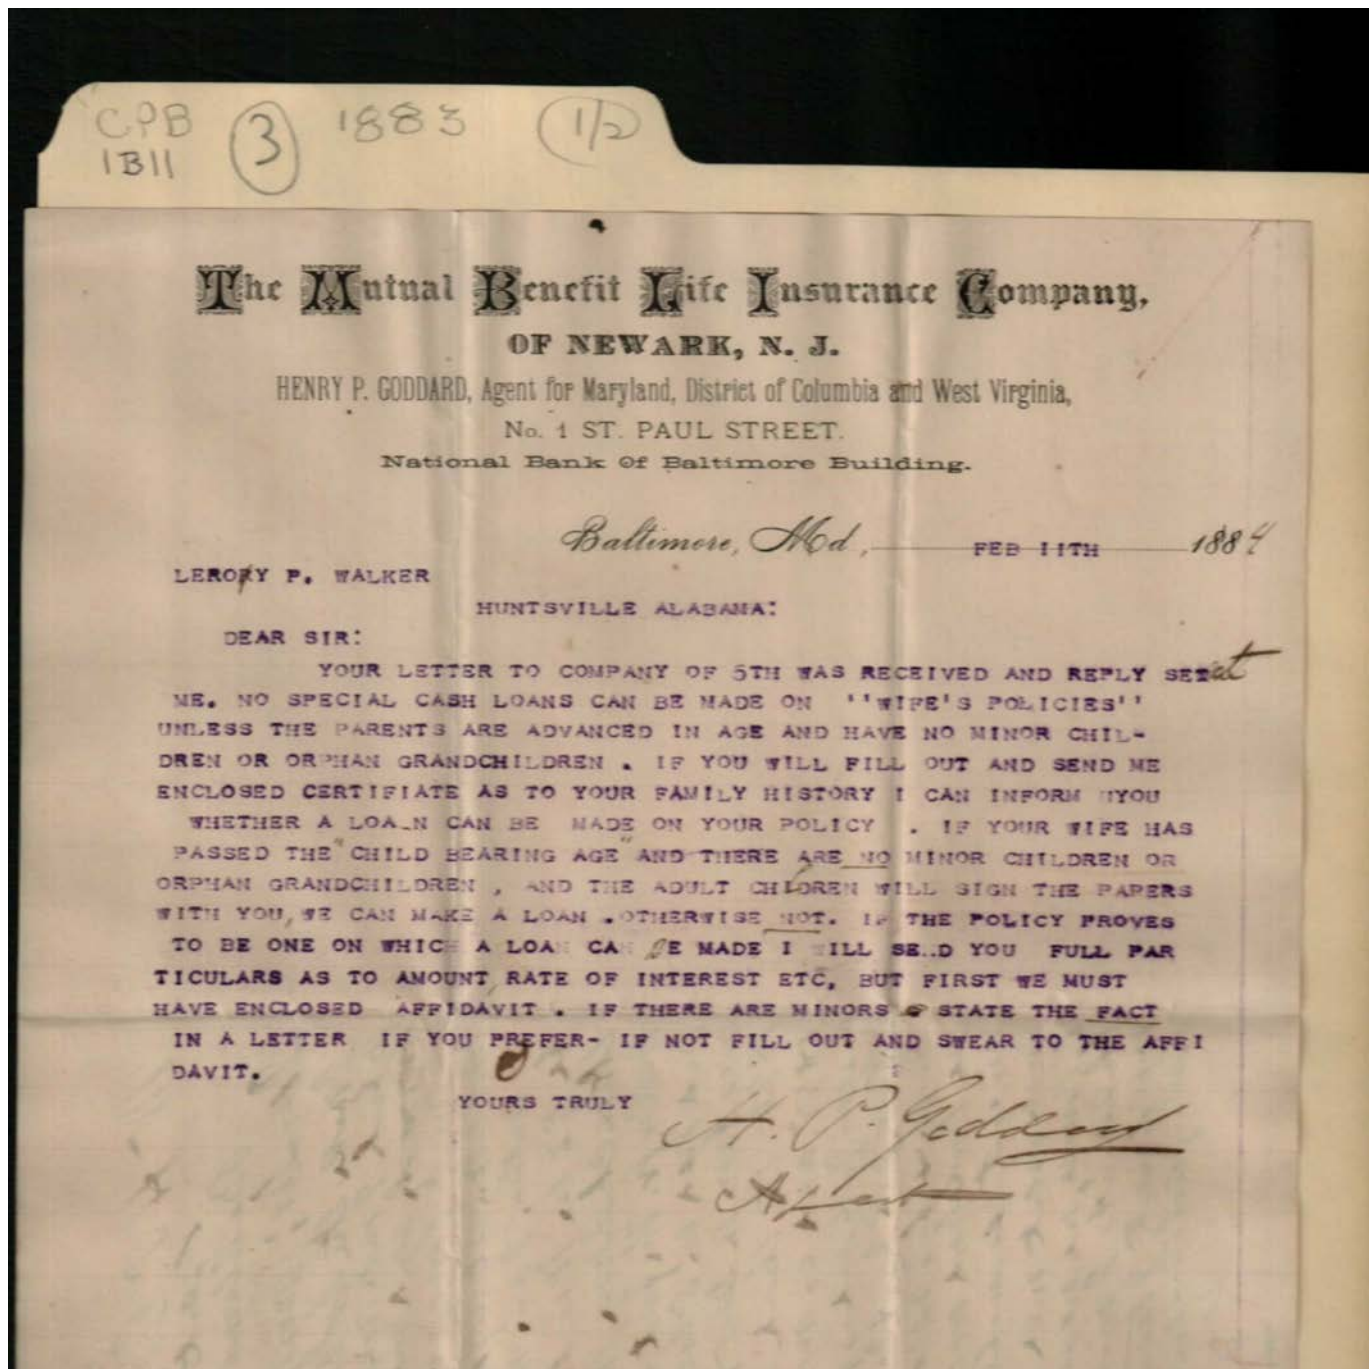 CPB 3 1883 1/2
1B11
The Mutual Benefit Life Insurance Company,
OF NEWARK, N. J.
HENRY P. GODDARD, Agent for Maryland, District of Columbia and West Virginia,
No. 1 ST. PAUL STREET.
National Bank Of Baltimore Building.
Baltimore, Md, FEB 11TH 1884
LEROY P. WALKER
HUNTSVILLE ALABAMA:
DEAR SIR:
YOUR LETTER TO COMPANY OF 5TH WAS RECEIVED AND REPLY
ME. NO SPECIAL CASH LOANS CAN BE MADE ON ''WIFE'S POLICIES''
UNLESS THE PARENTS ARE ADVANCED IN AGE AND HAVE NO MINOR CHIL-
DREN OR ORPHAN GRANDCHILDREN . IF YOU WILL FILL OUT AND SEND ME
ENCLOSED CERTIFIATE AS TO YOUR FAMILY HISTORY I CAN INFORM YYOU
WHETHER A LOA_N CAN BE MADE ON YOUR POLICY . IF YOUR WIFE HAS
PASSED THE "CHILD BEARING AGE" AND THERE ARE NO MINOR CHILDREN OR
ORPHAN GRANDCHILDREN , AND THE ADULT CHILDREN WILL SIGN THE PAPERS
WITH YOU, WE CAN MAKE A LOAN .OTHERWISE NOT. IF THE POLICY PROVES
TO BE ONE ON WHICH A LOAN CAN BE MADE I WILL SE..D YOU FULL PAR
TICULARS AS TO AMOUNT, RATE OF INTEREST ETC, BUT FIRST WE MUST
HAVE ENCLOSED AFFIDAVIT . IF THERE ARE MINORS STATE THE FACT
IN A LETTER IF YOU PREFER- IF NOT FILL OUT AND SWEAR TO THE AFFI
DAVIT.
YOURS TRULY
H. P. Goddard
Agent